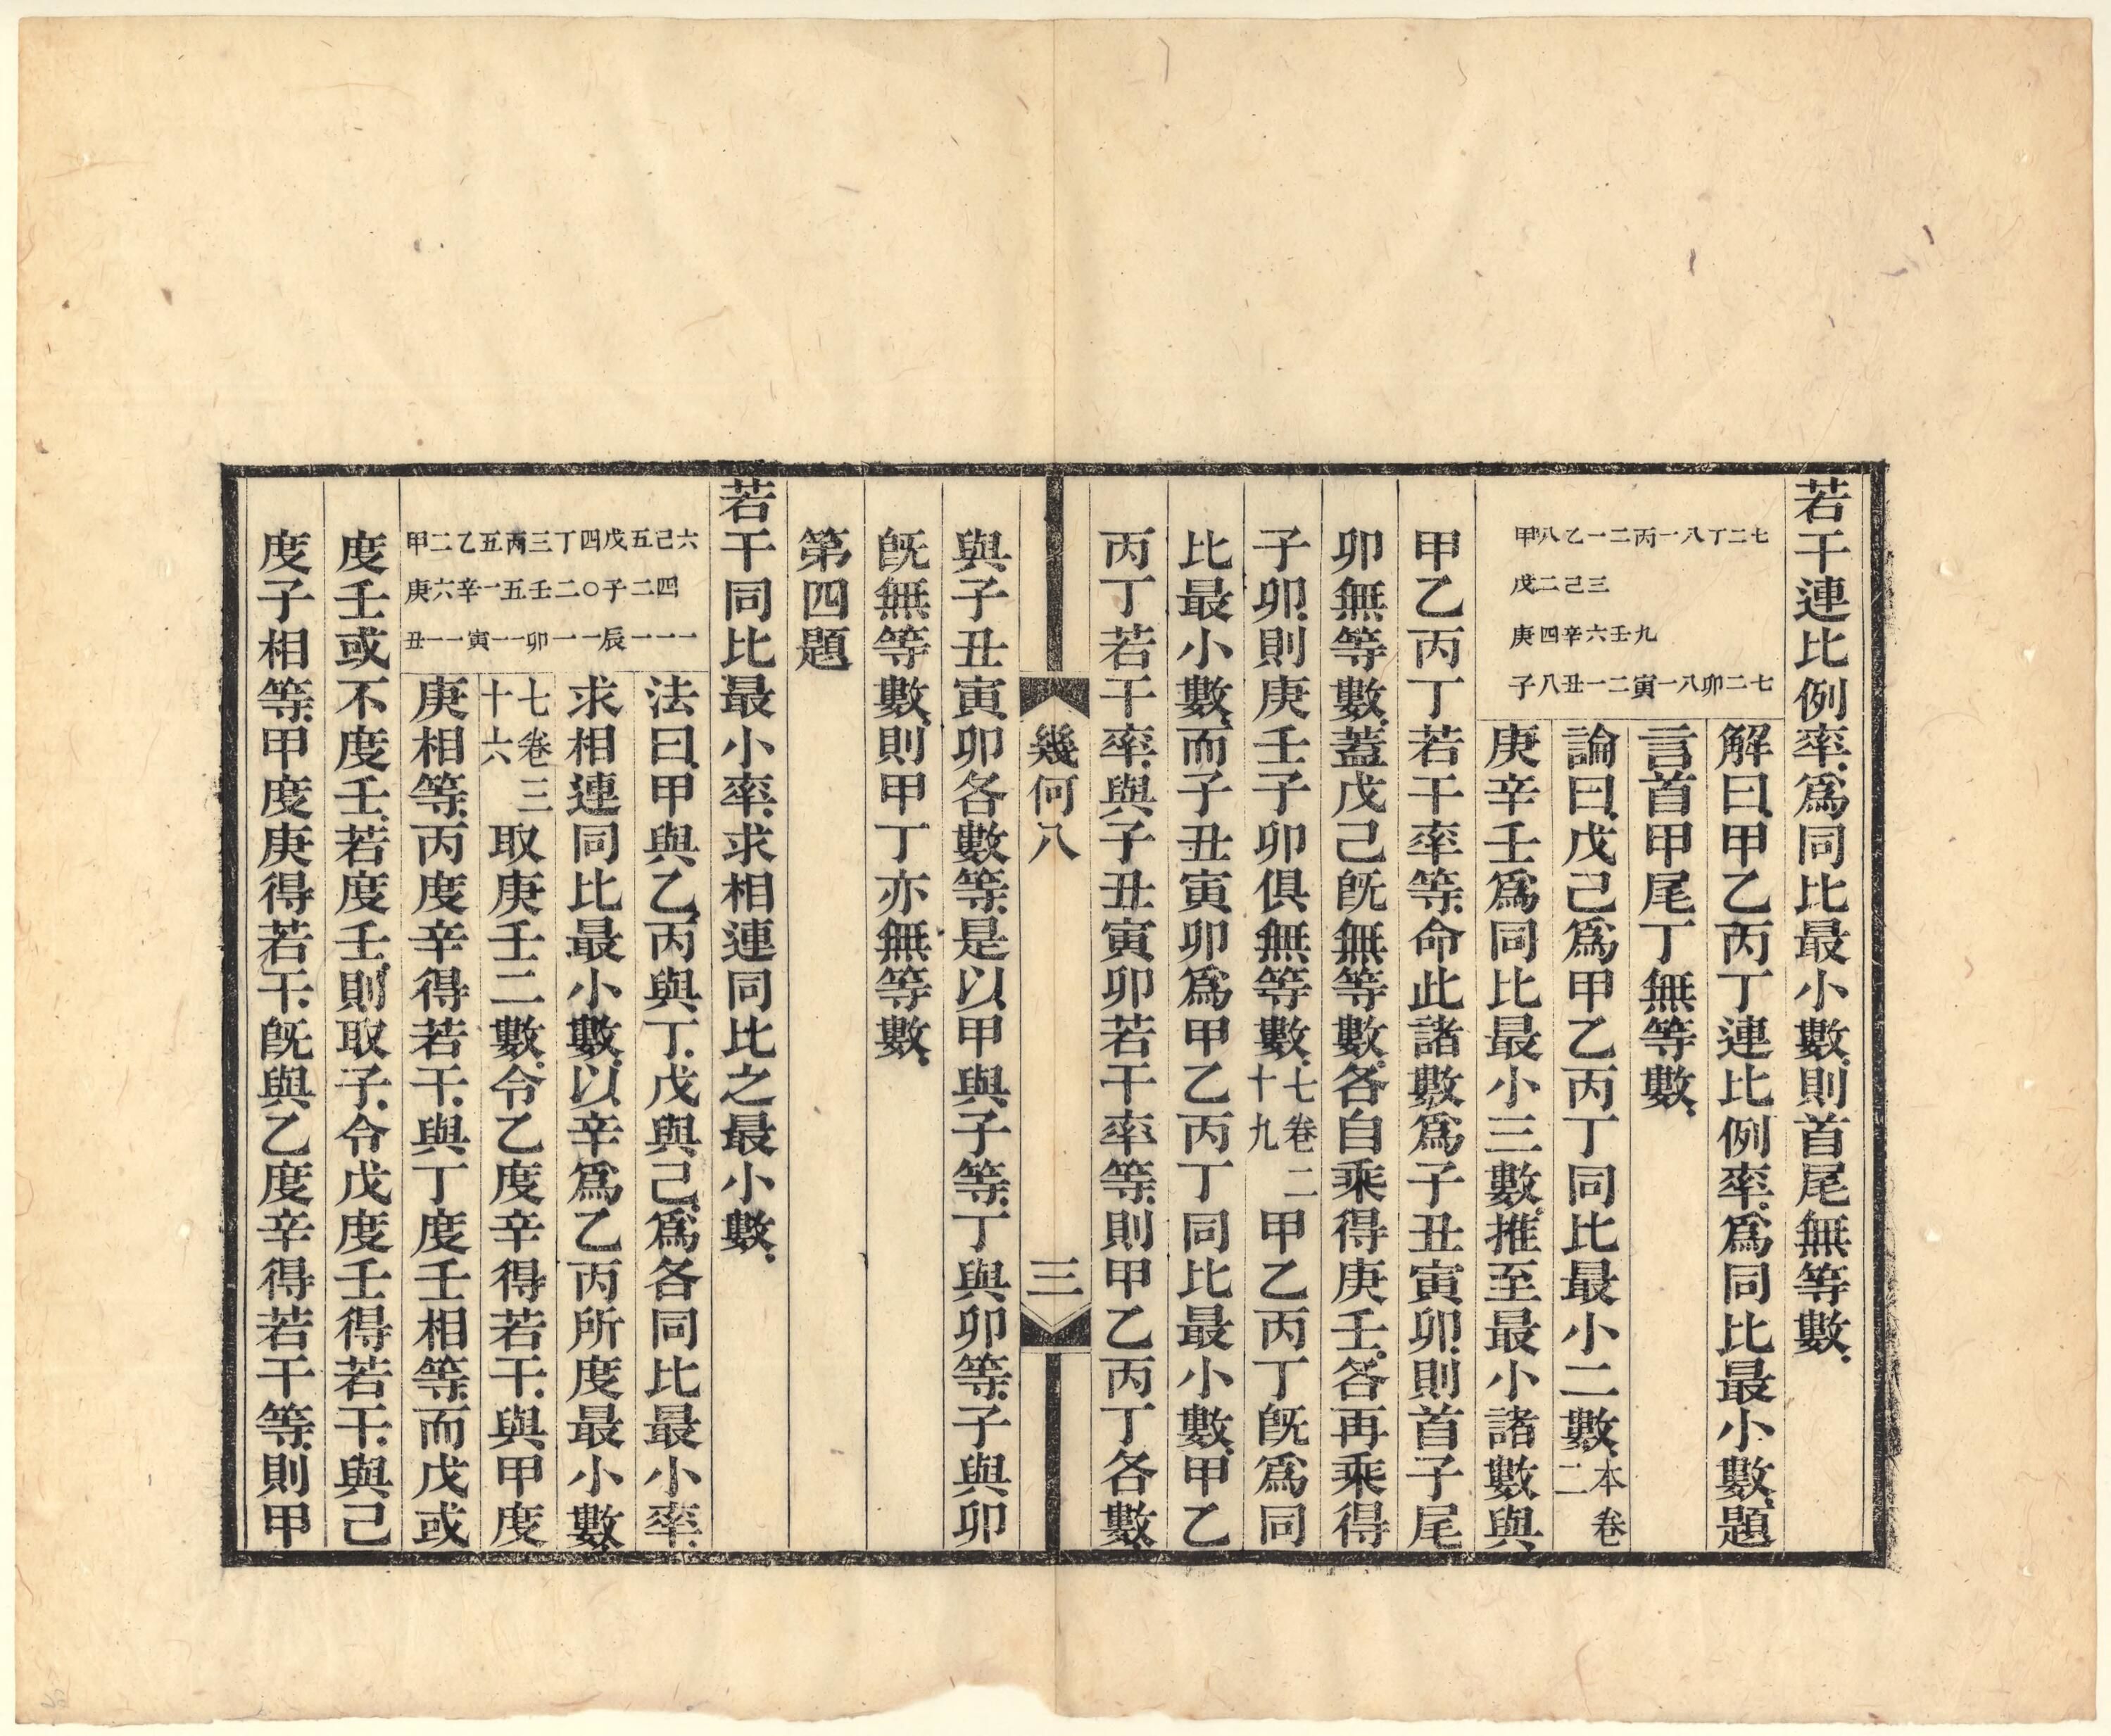 若干連比例率.爲同比最小數.則首尾無等數.
甲八乙一二丙一八丁二七
戊二己三
庚四辛六壬九
子八丑一二寅一八卯二七
解曰.甲乙丙丁連比例率.爲同比最小數.題
言首甲尾丁無等數.
論曰.戊己爲甲乙丙丁同比最小二數.本卷二
庚辛壬爲同比最小三數.推至最小諸數與
甲乙丙丁若干率等.命此諸數爲子丑寅卯.則首子尾
卯無等數.蓋戊己旣無等數.各自乘得庚壬.各再乘得
子卯.則庚壬子卯俱無等數.七卷二十九甲乙丙丁旣爲同
比最小數.而子丑寅卯爲甲乙丙丁同比最小數.甲乙
丙丁若干率.與子丑寅卯若干率等.則甲乙丙丁各數.
幾何八
三
與子丑寅卯各數等.是以甲與子等.丁與卯等.子與卯
旣無等數.則甲丁亦無等數.
第四題
若干同比最小率.求相連同比之最小數.
甲二乙五丙三丁四戊五己六
庚六辛一五壬二〇子二四
丑一一寅一一卯一一辰一一一
法曰.甲與乙.丙與丁.戊與己.爲各同比最小率.
求相連同比最小數.以辛爲乙丙所度最小數.
七卷三十六取庚壬二數.令乙度辛得若干.與甲度
庚相等.丙度辛得若干.與丁度壬相等.而戊或
度壬或不度壬.若度壬.則取子.令戊度壬得若干.與己
度子相等.甲度庚得若干.旣與乙度辛得若干等.則甲